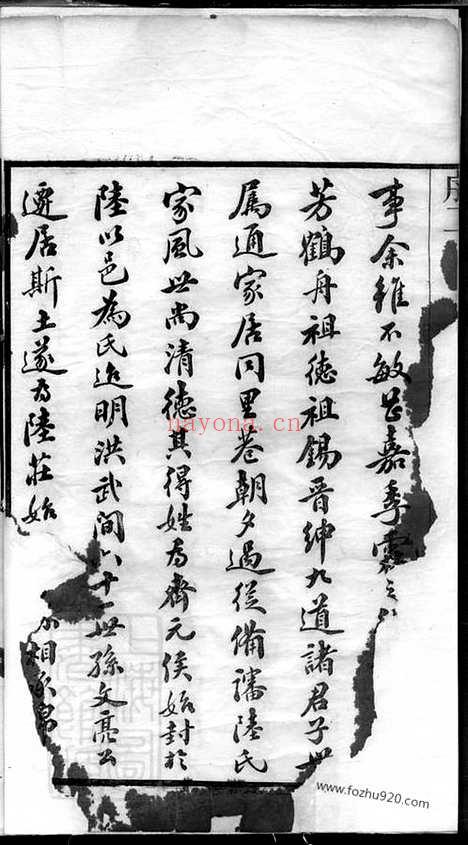 序二
事余雖不敏且嘉季霞之
芳鶴舟祖德祖錫晋紳九道諸君子世
属通家居同里巷朝夕過從備諳陸氏
家風世尚清德其得姓為齊元侯始封於
陸以邑為氏迨明洪武間八十一世孫文亮公
遷居斯土遂為陸莊始
相承
nayona.cn
www.fozhu920.com